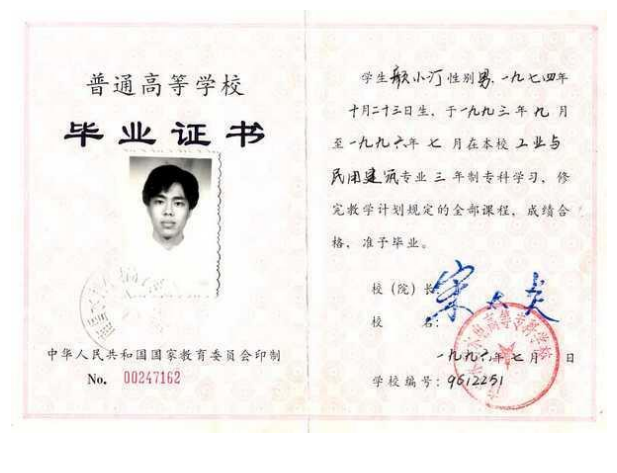 普通高等学校
毕业证书
中华人民共和国国家教育委员会印制
No. 00247162
学生 小汀 性别男,一九七四年
十月二十三日生,于一九九三年九月
至一九九六年七月在本校工业与
民用建筑专业三年制专科学习,修
完教学计划规定的全部课程,成绩合
格,准予毕业。
校(院)长:
校 名:
一九九六年七月 日
学校编号:9612251